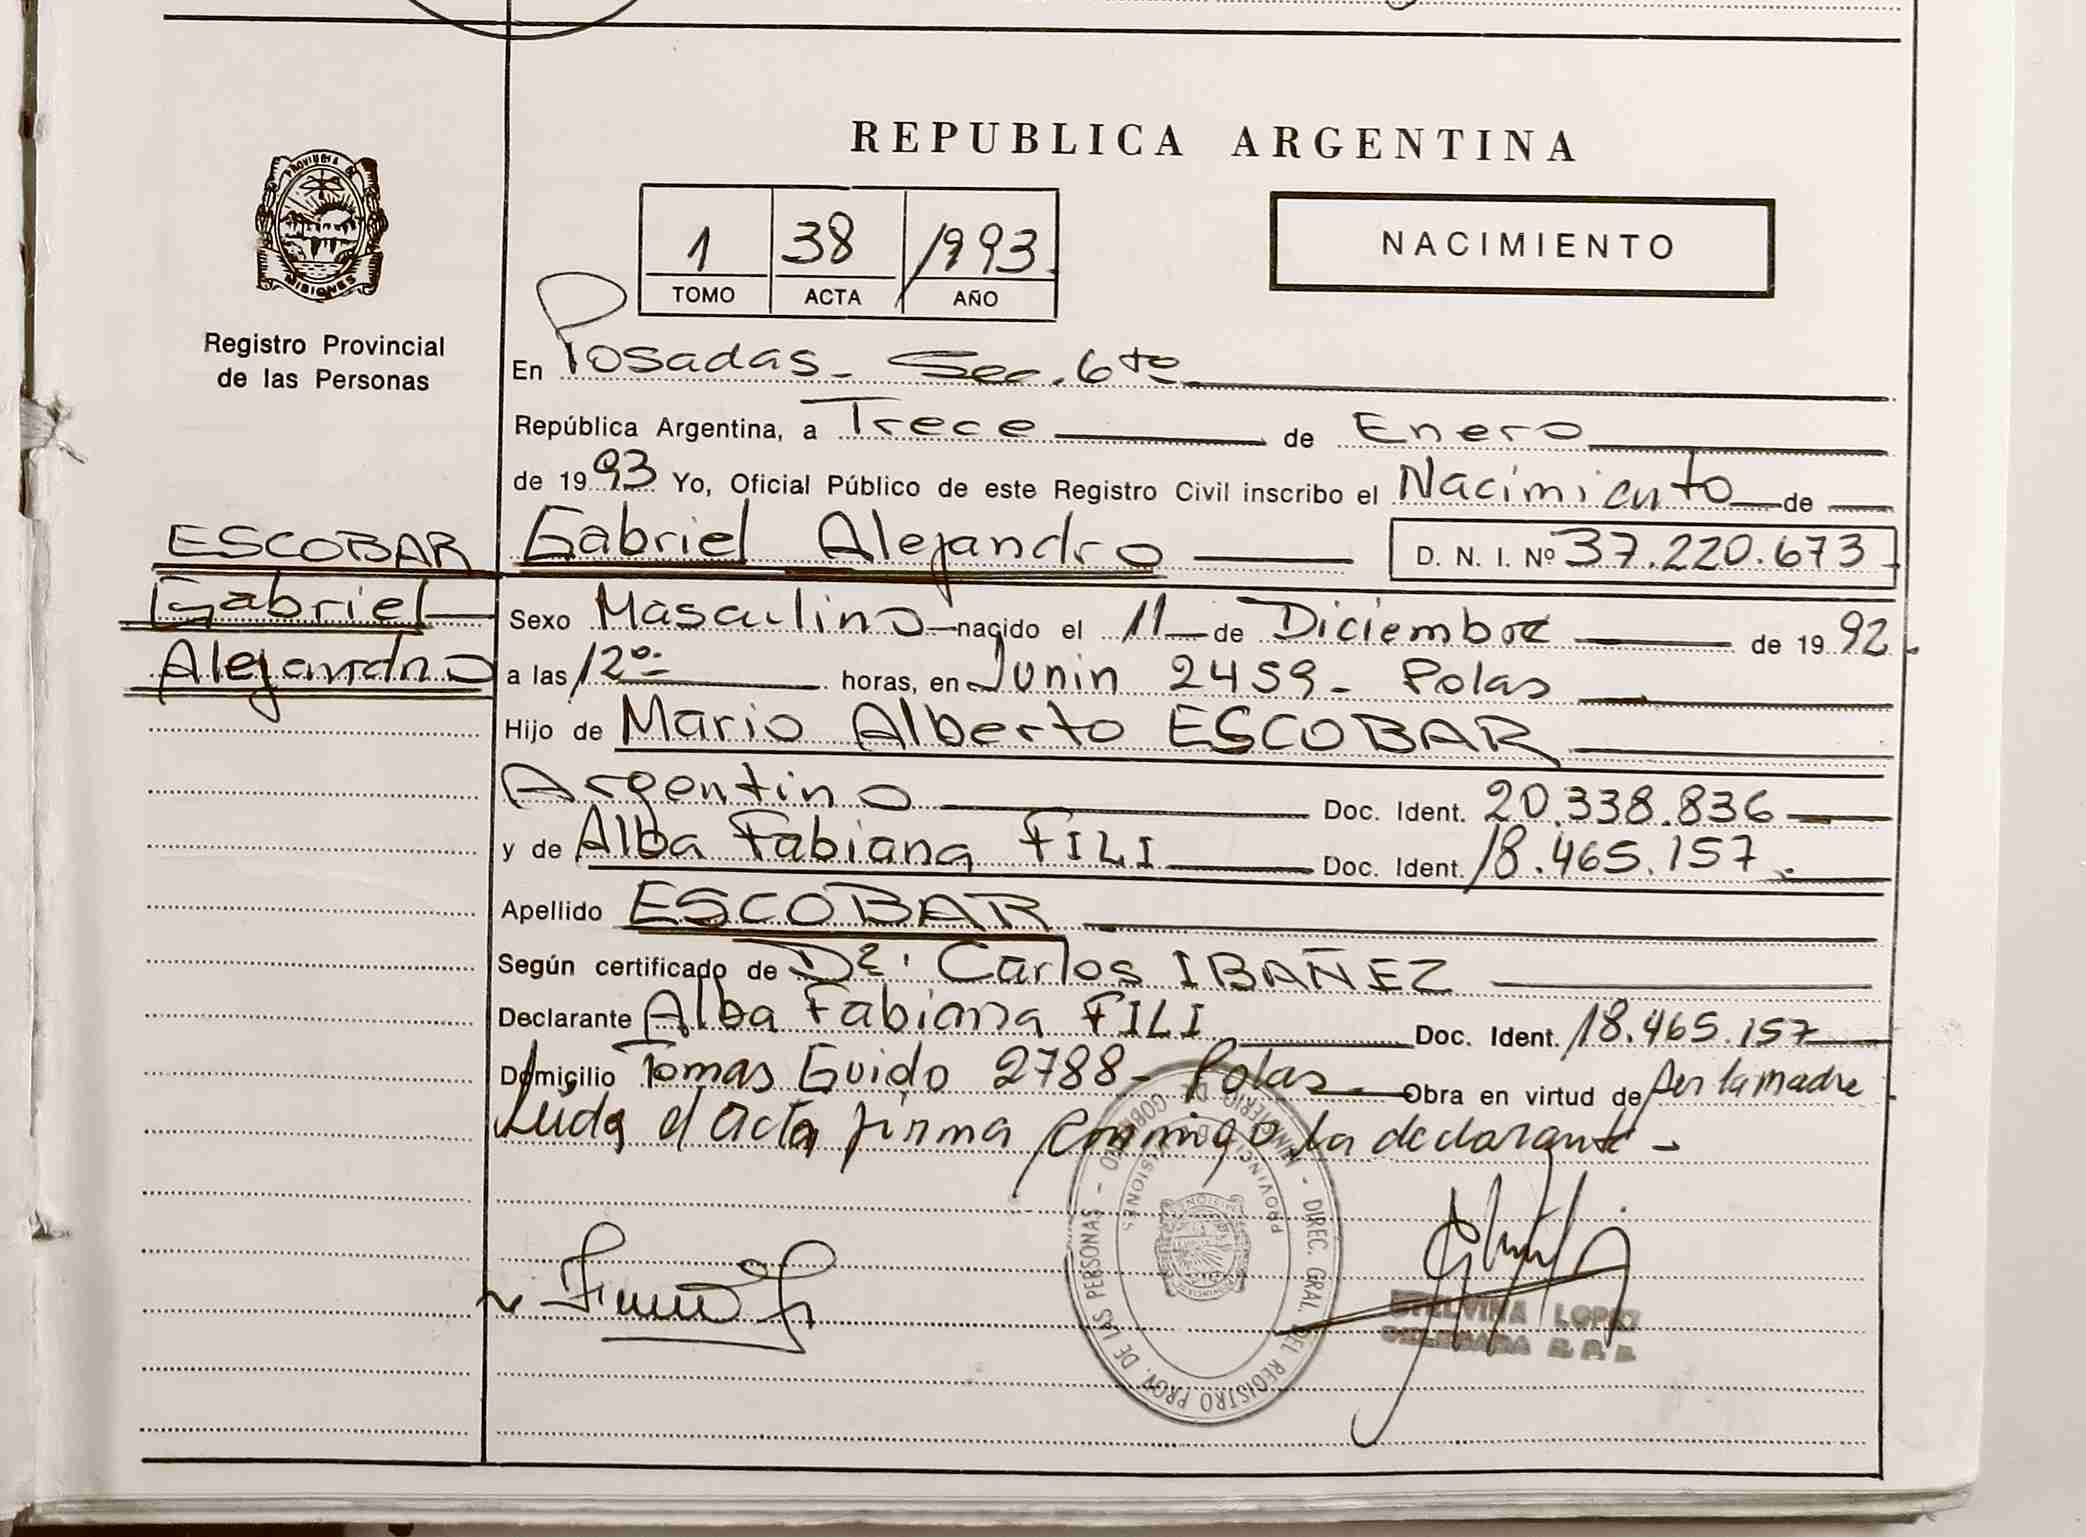 REPUBLICA ARGENTINA
PROVINCIA DE
MISIONES
Registro Provincial
de las Personas
1 38 1993
TOMO ACTA AÑO
NACIMIENTO
En Posadas - Sec. 6ta
República Argentina, a Trece de Enero
de 1993 Yo, Oficial Público de este Registro Civil inscribo el Nacimiento de
ESCOBAR
Gabriel
Alejandro
Gabriel Alejandro D. N. I. Nº 37.220.673
Sexo Masculino nacido el 11 de Diciembre de 1992
a las 12 horas, en Junin 2459 - Pdas
Hijo de Mario Alberto ESCOBAR
Argentino Doc. Ident. 20.338.836
y de Alba Fabiana FILI Doc. Ident. 18.465.157
Apellido ESCOBAR
Según certificado de Dr. Carlos IBAÑEZ
Declarante Alba Fabiana FILI Doc. Ident. 18.465.157
Domicilio Tomas Guido 2788 - Pdas - Obra en virtud de ser la madre
Leida el acta firma conmigo la declarante -
MINISTERIO DE GOBIERNO - DIREC. GRAL. DEL REGISTRO PROV. DE LAS PERSONAS -
PROVINCIA DE MISIONES
ETELVINA LOPEZ
DELEGADA R. P. P.